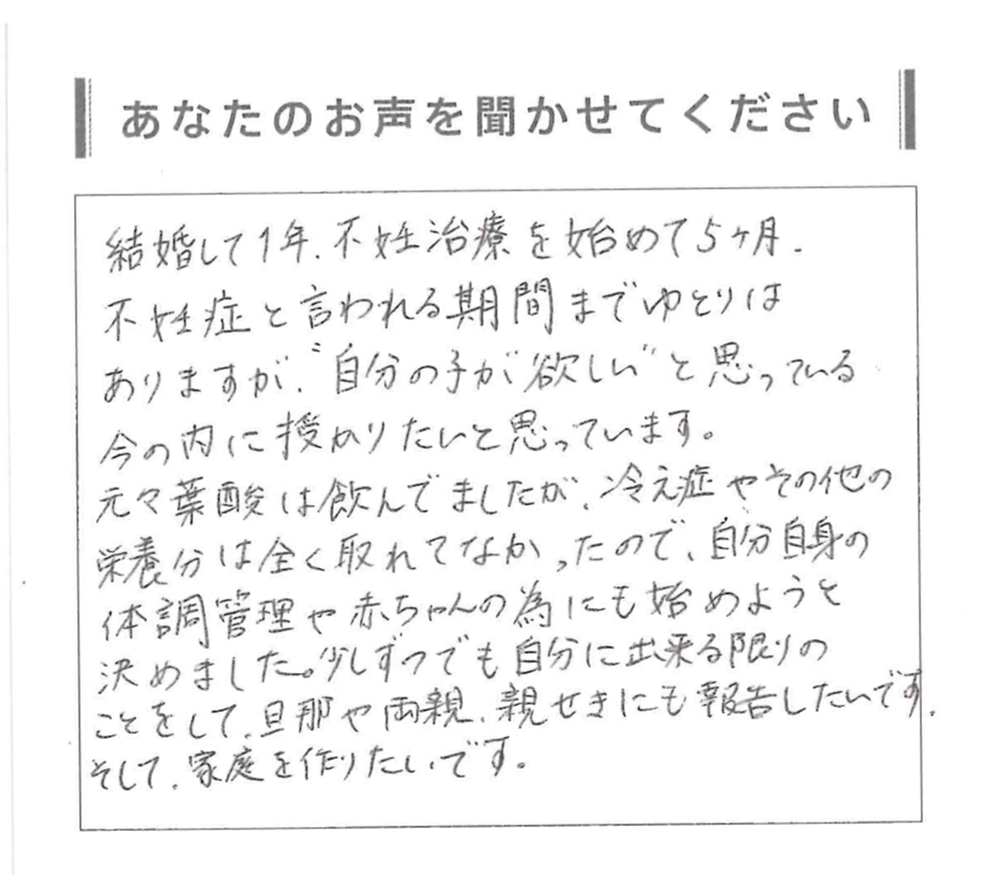 あなたのお声を聞かせてください
結婚して1年、不妊治療を始めて5ヶ月.
不妊症と言われる期間までゆとりは
ありますが、"自分の子が欲しい"と思っている
今の内に授かりたいと思っています。
元々葉酸は飲んでましたが、冷え症やその他の
栄養分は全く取れてなかったので、自分自身の
体調管理や赤ちゃんの為にも始めようと
決めました。少しずつでも自分に出来る限りの
ことをして、旦那や両親、親せきにも報告したいです.
そして、家庭を作りたいです。